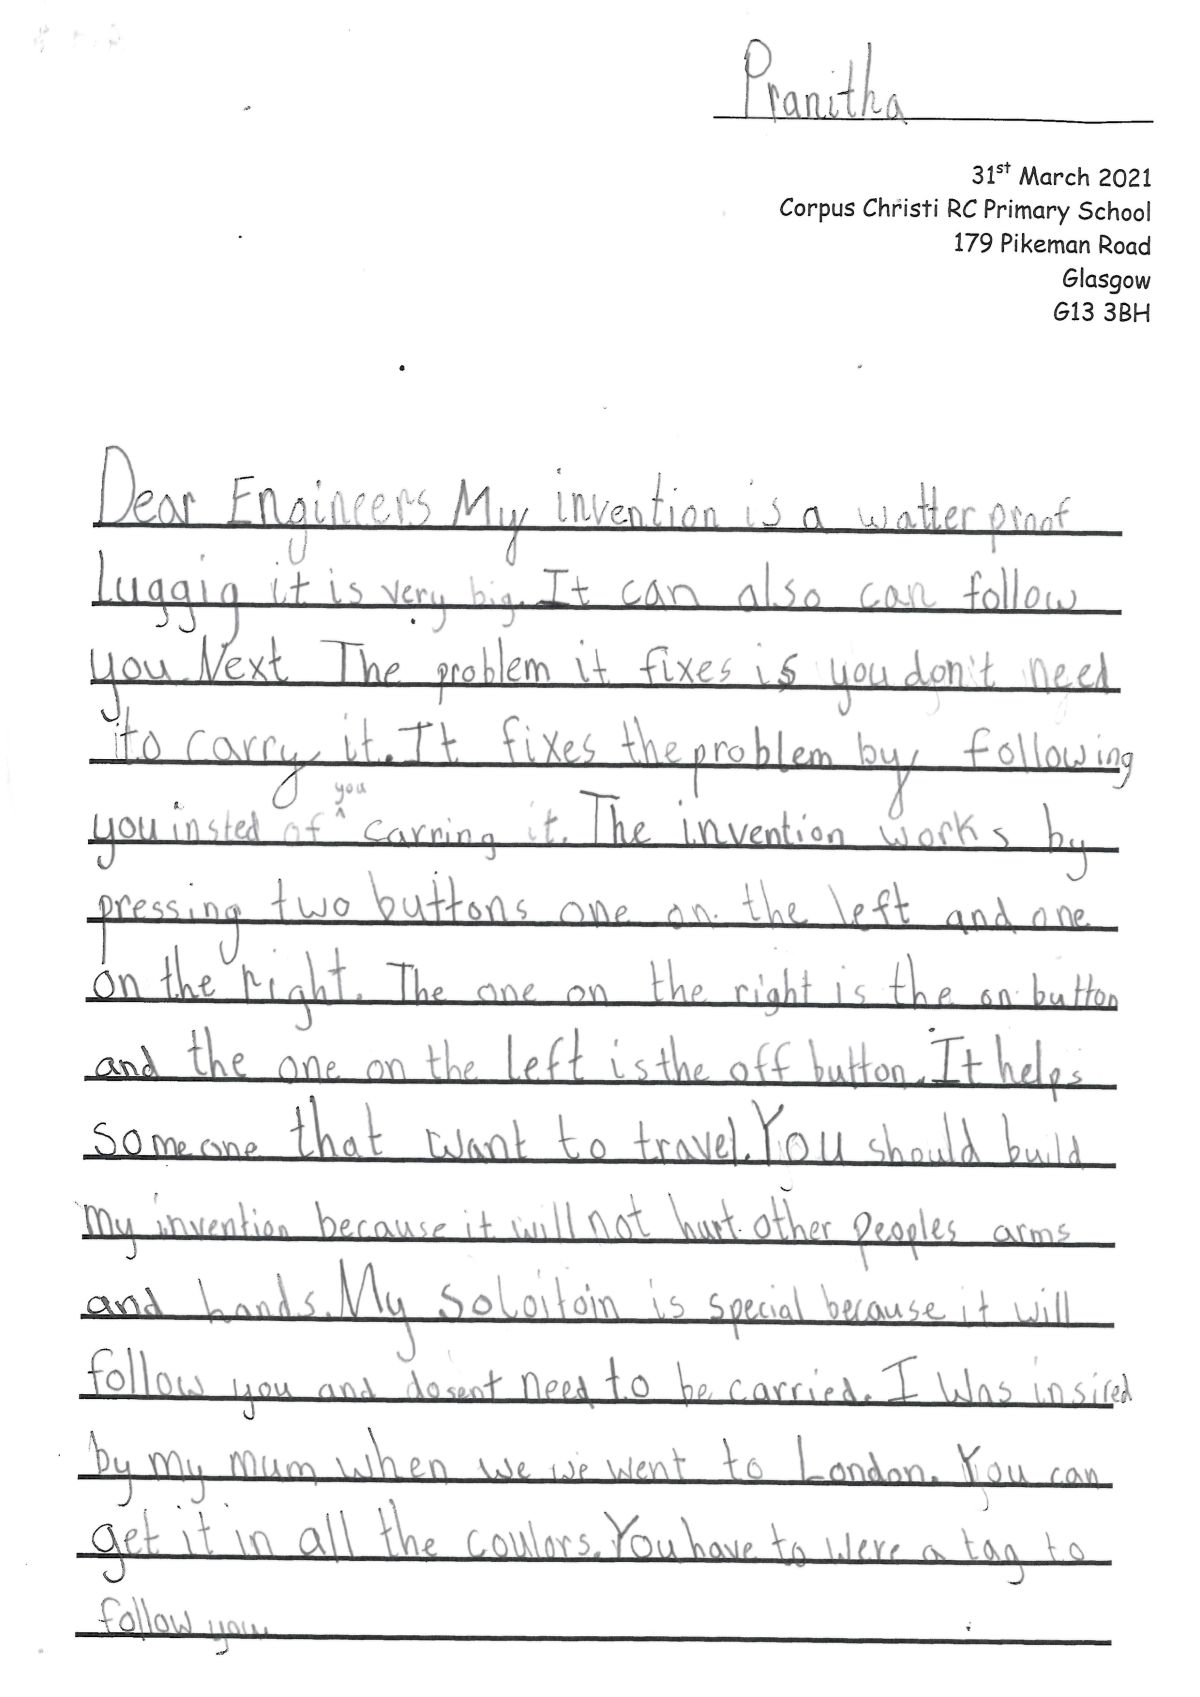 Pranitha
31st March 2021
Corpus Christi RC Primary School
179 Pikeman Road
Glasgow
G13 3BH
Dear Engineers My invention is a watter proof
Luggig it is very big. It can also can follow
you. Next The problem it fixes is you don't need
to carry it. It fixes the problem by following
you insted of you carring it. The invention works by
pressing two buttons one on the left and one
on the right. The one on the right is the on button
and the one on the left is the off button. It helps
someone that want to travel. You should build
my invention because it will not hurt other peoples arms
and hands. My soloitoin is special because it will
follow you and dosent need to be carried. I was insired
by my mum when we we went to London. You can
get it in all the coulors. You have to were a tag to
follow you